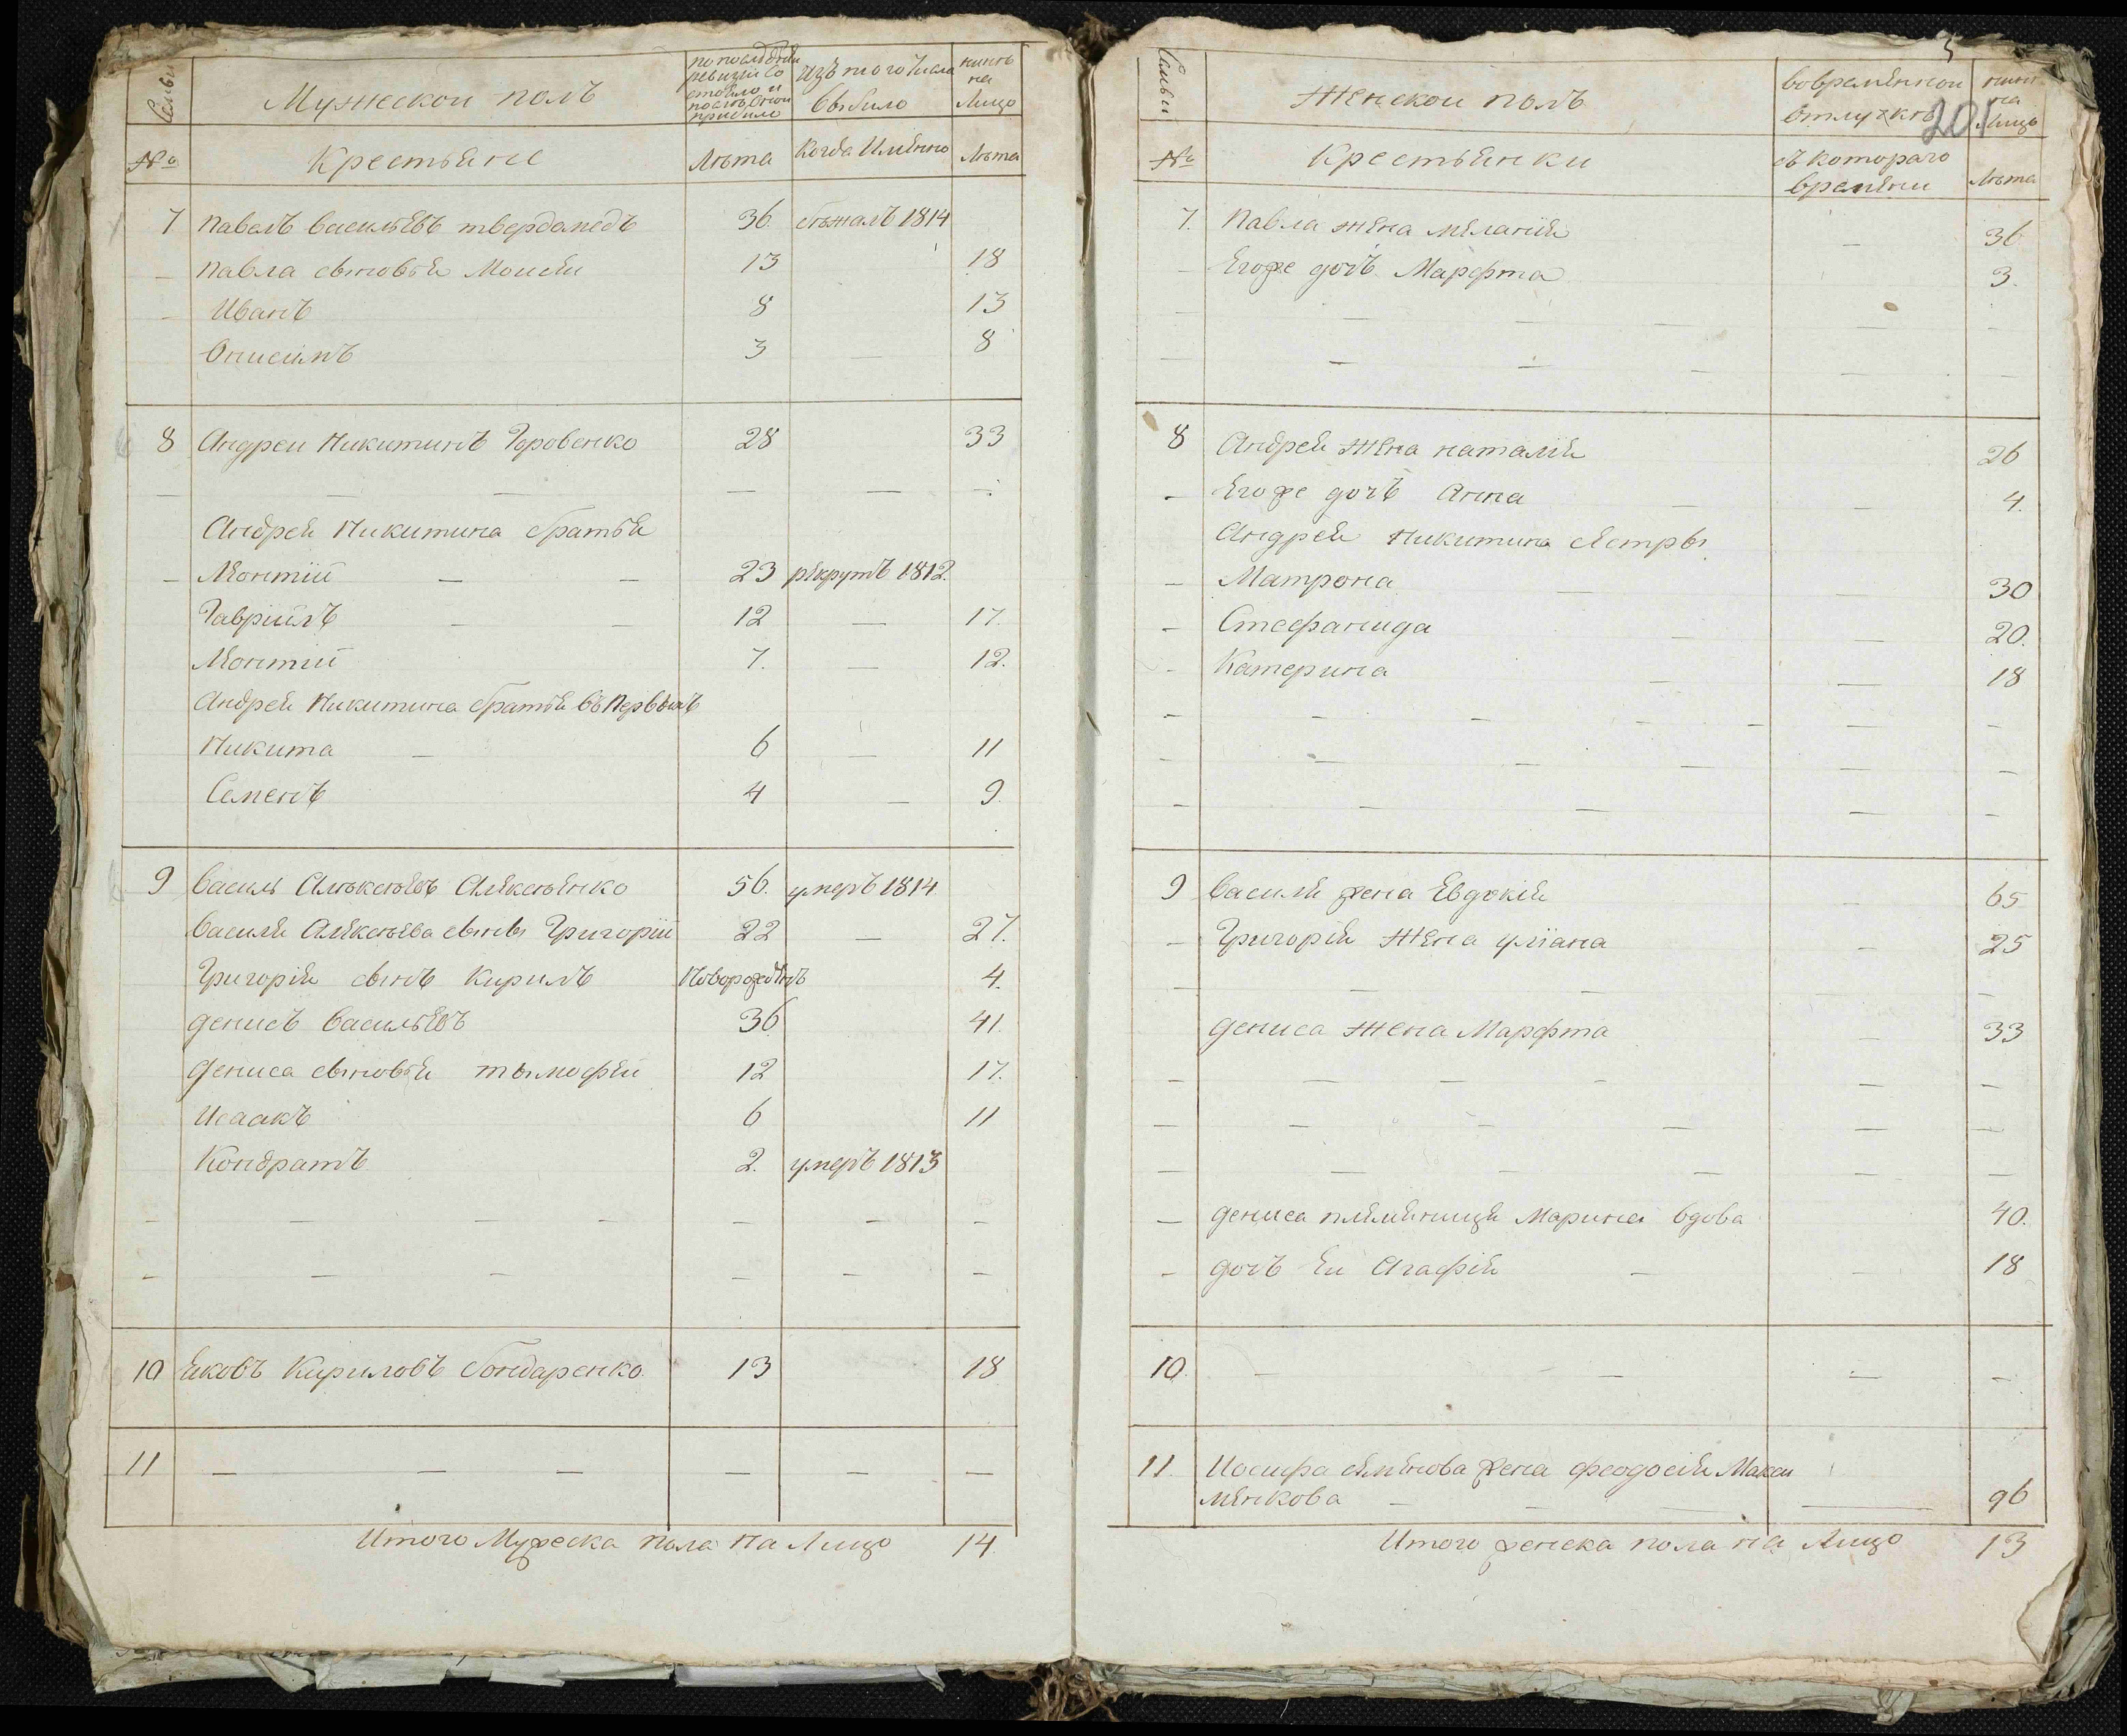 Семьи Мужескои полъ по последнеи ревизии состояло и после оной прибыло Изъ того числа выбило ныне на Лицо
№ Крестьяне Лѣта Когда Имянно Лѣта
7 Павелъ васильевъ 36. сбѣжалъ 1814
– Павла сыновья Моисеи 13 18
– Иванъ 8 13
Онисимъ 3 — 8
8 Андреи Никитинъ Горовенко 28 33
— — — — — —
Андрея Никитина братья
– Леонтїй — — 23 рекрутъ 1812.
Гавріилъ — — 12 — 17.
Леонтїй 7. — 12.
Андрея Никитина братья
Никита — 6 — 11
Семенъ 4 — 9.
9 Василь Алексѣевъ Алексѣенко 56. умеръ 1814
Василя Алексѣева сынъ Григорїй 22 — 27.
Григорія сынъ Кирилъ Новорожденъ 4.
денисъ Васильевъ 36 41.
дениса сыновья тымофѣй 12 17.
Исаакъ 6 11
Кондратъ 2. умеръ 1813
– — — – — – –
– — — — — —
10 Яковъ Кириловъ бондаренко 13 18
11 — — — — — —
Итого Мужеска пола на Лицо 14
5
201
Семьи Женскои полъ вовременнои отлучкѣ ныне на Лицо
№ Крестьянки съ котораго времени Лѣта
7. Павла жена мелания — 36
– Егоже дочъ Марфта 3.
– — — — — –
— — — — — –
8 Андрея жена наталїя 26
– Егоже дочъ Анна — — 4.
Андрея никитина сестры
– Матрона — — 30
– Стефанида — — 20.
– Катерина — — 18
– — — — – — –
– — — — — —
– — — — –
9 Василя жена Евдокія — 65
– Григорія жена улїана — 25
– — — —
дениса жена Марфта — 33
– — — – — –
— — — — — —
— — — — — —
— дениса племяница Марина вдова 40.
– дочъ Еи Агафія — — 18
10. — — — –
11. Иосифа семенова жена феодосія Макси
менкова — — — — 96
Итого женска пола на Лицо 13